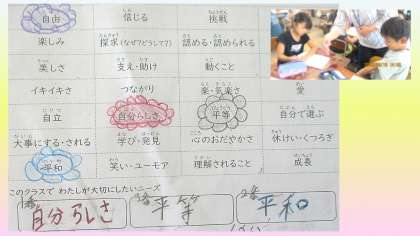 自由 信じる 挑戦
楽しみ 探求(なぜ?どうして?) 認める・認められる
美しさ 支え・助け 動くこと
イキイキさ つながり 楽・気楽さ 愛
自立 自分らしさ 平等 自分で選ぶ
大事にする・される 学び・発見 心のおだやかさ 休けい・くつろぎ
平和 笑い・ユーモア 理解されること 成長
このクラスで わたしが大切にしたいニーズ
1番 自分らしさ 平等 2番 平和